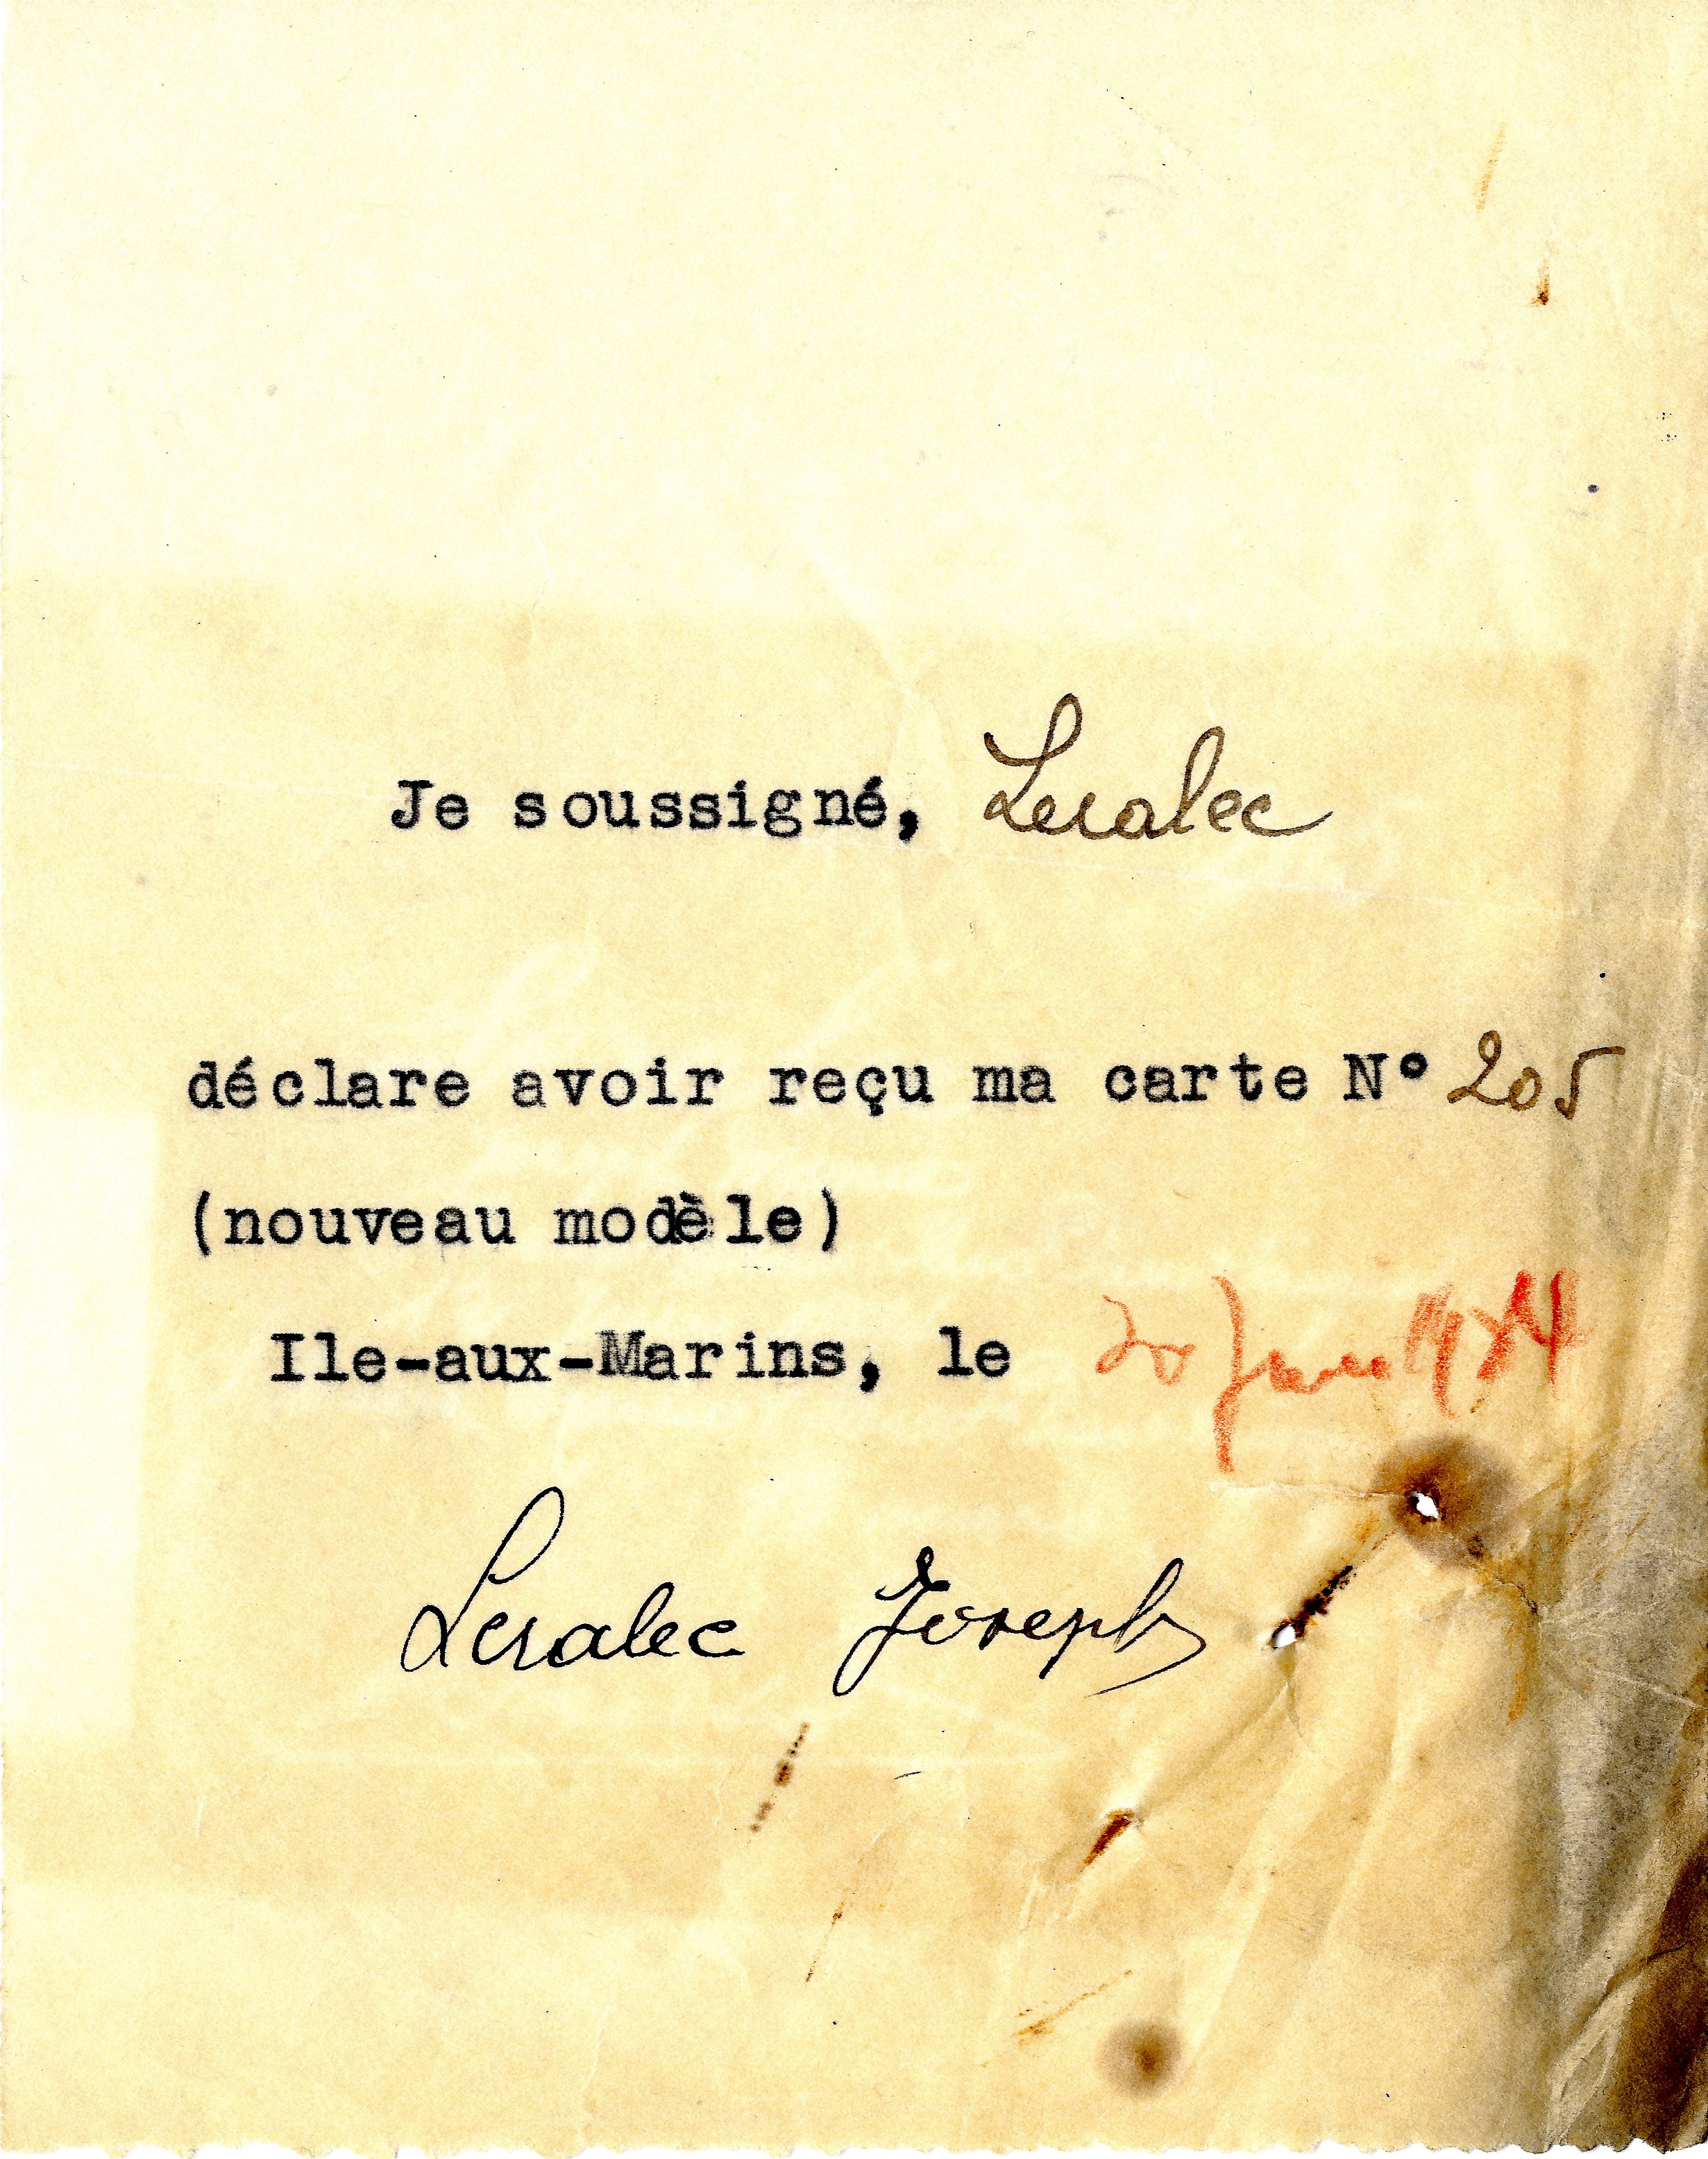 Je soussigné, Leralec
déclare avoir reçu ma carte N° 205
(nouveau modèle)
Ile-aux-Marins, le 20
Leralec Joseph